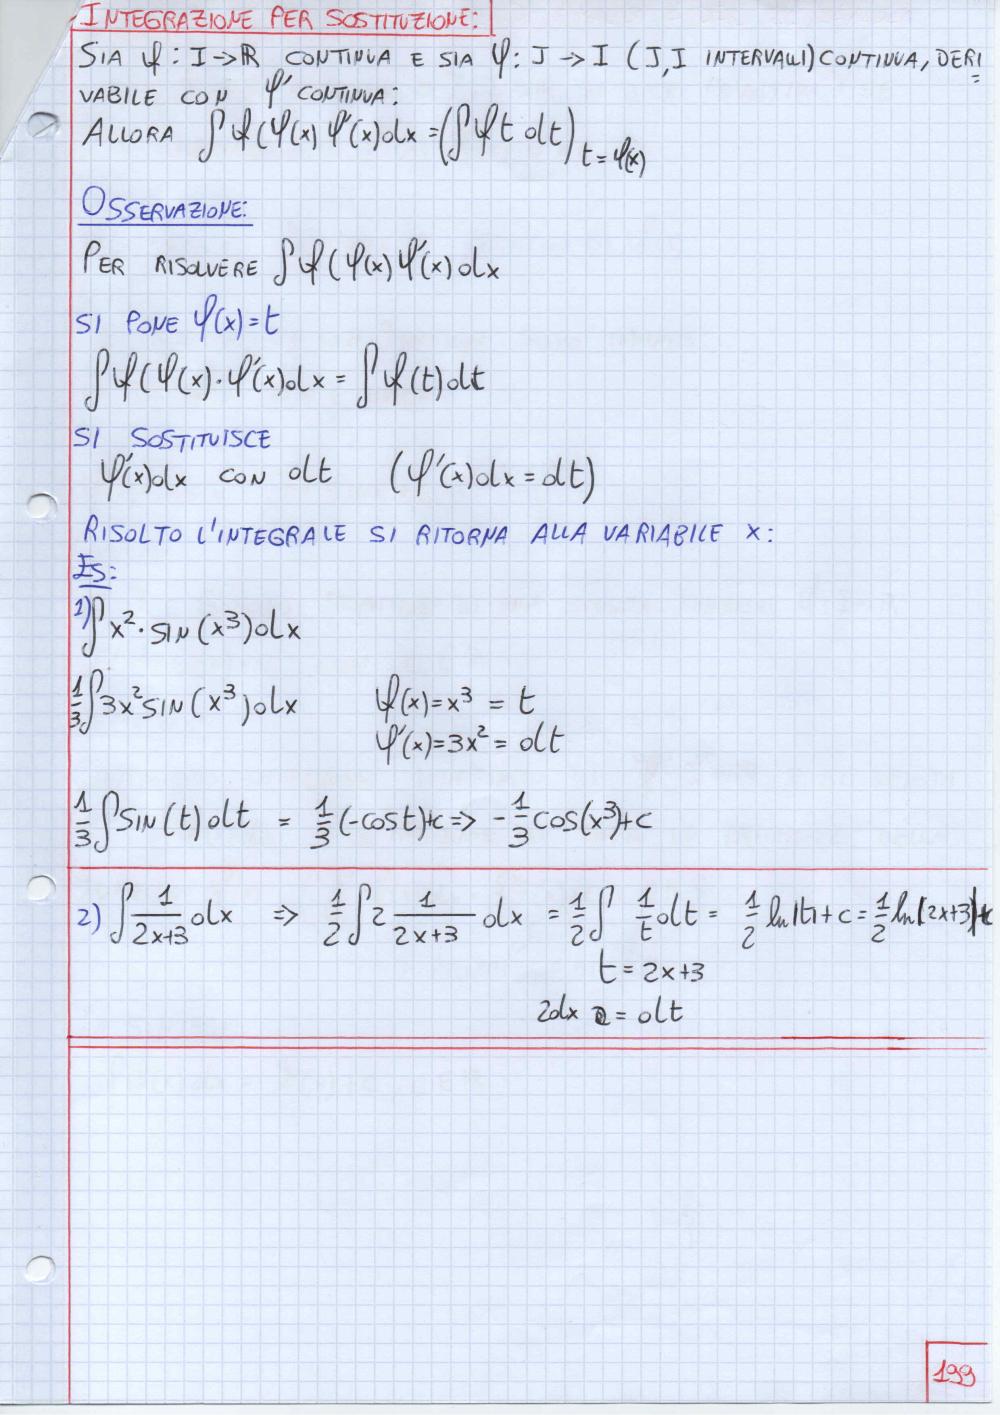 INTEGRAZIONE PER SOSTITUZIONE:
SIA ψ: I → R CONTINUA E SIA φ: J → I (J,I INTERVALLI) CONTINUA, DERI
VABILE CON φ' CONTINUA:
ALLORA ∫ψ(φ(x) φ'(x)dx = (∫ψt dt) t = φ(x)
OSSERVAZIONE:
PER RISOLVERE ∫ψ(φ(x) φ'(x)dx
SI PONE φ(x)=t
∫ψ(φ(x)·φ'(x)dx = ∫ψ(t)dt
SI SOSTITUISCE
φ'(x)dx CON dt (φ'(x)dx = dt)
RISOLTO L'INTEGRALE SI RITORNA ALLA VARIABILE x:
ES:
1) ∫x²·SIN(x³)dx
1/3 ∫3x² SIN(x³)dx φ(x)=x³ = t
φ'(x)=3x² = dt
1/3 ∫SIN(t)dt = 1/3 (-cost)+c => -1/3 cos(x³)+c
2) ∫ 1/(2x+3) dx => 1/2 ∫2 1/(2x+3) dx = 1/2 ∫ 1/t dt = 1/2 ln|t|+c = 1/2 ln|2x+3|+c
t = 2x+3
2dx = dt
199